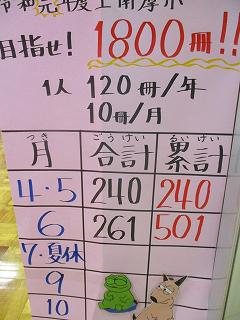 令和元年度上南摩小
目指せ! 1800冊!!
1人 120冊/年
10冊/月
つき ごうけい るいけい
月 合計 累計
4・5 240 240
6 261 501
7・夏休
9
10